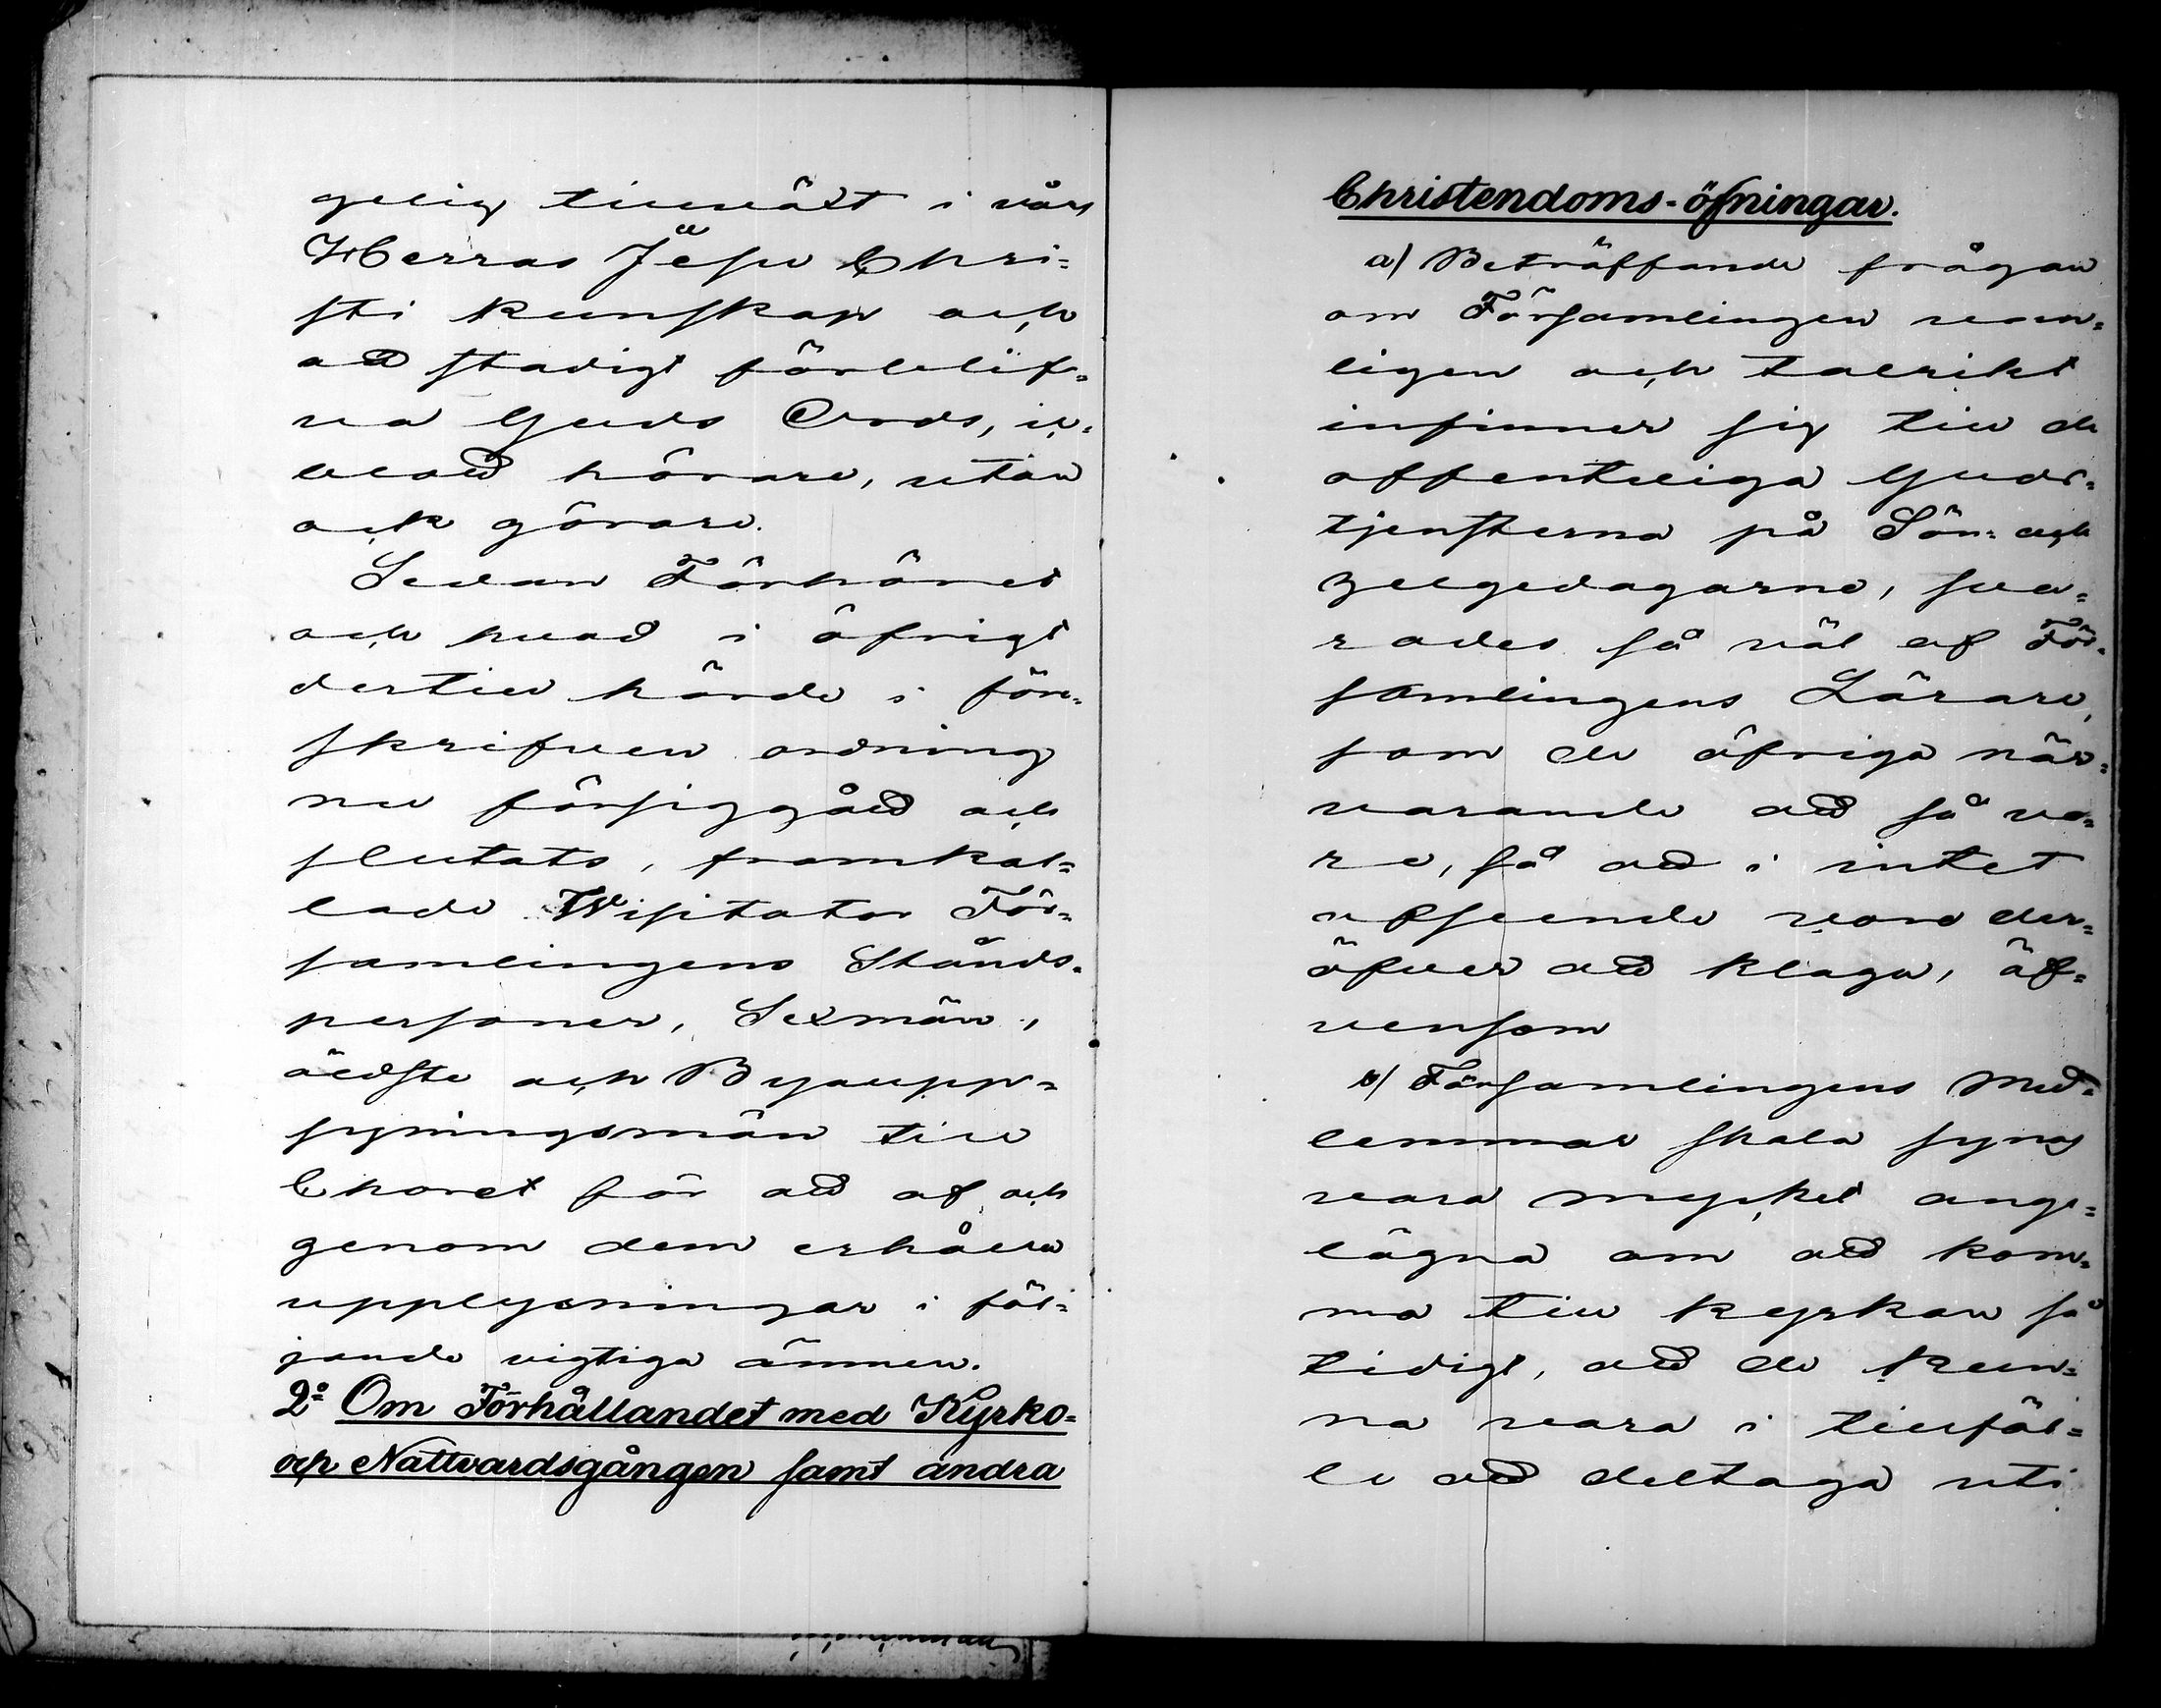 gelig tillväxt i vårs
Herras Jesu Chri-
sti kunskap och
att stadigt förblif-
va Guds Ords, ic-
blott hörare, utan
ock görare.
Sedan Förhöret
och hvad i öfrigt
dertill hörde i före-
skrifven ordning
nu försiggått och
slutats, framkal-
lade Wisitator För-
samlingens Stånds-
personer, Sexmän,
äldste och Byaupp-
syningsmän till
Choret för att af och
genom dem erhålla
upplysningar i föl-
jande vigtiga ämnen.
2º Om Förhållandet med Kyrko-
och Nattvardsgången samt andra
Christendoms-öfningar.
a) Beträffande frågan
om Församlingen van-
ligen och talrikt
infinner sig till de
offentliga Guds-
tjensterna på Sön- och
Helgedagarne, sva-
rades så väl af För-
samlingens Lärare,
som de öfriga när-
varande att så va-
re, så att i intet
afseende vore der-
öfver att klaga, äf-
vensom
b) Församlingens Med-
lemmar skola synas
vara mycket ange-
lägna om att kom-
ma till kyrkan så
tidigt, att de kun-
na vara i tillfäl-
le att deltaga uti